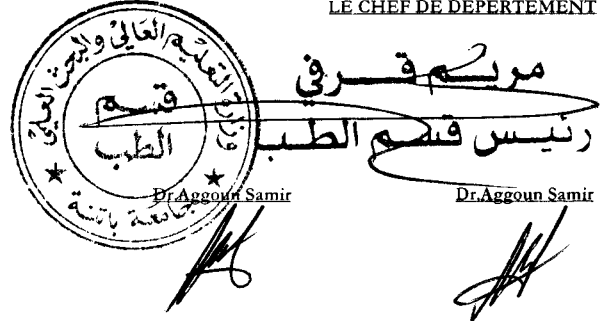 LE CHEF DE DEPERTEMENT
وزارة التعليم العالي والبحث العلمي
قسم
الطب
جامعة باتنة
مريم قرفي
رئيس قسم الطب
Dr.Aggoun Samir
Dr.Aggoun Samir